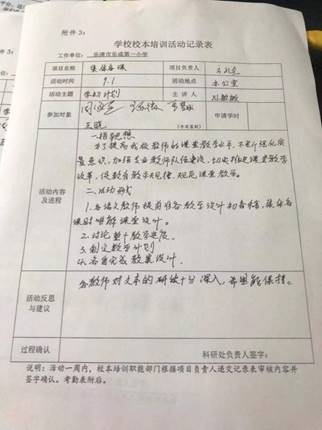 附件 3：
学校校本培训活动记录表
工作单位： 乐清市乐成第一小学
项目名称 集体备课 项目负责人
活动时间 9.1 活动地点 办公室
活动主题 学期计划 主讲人
参加对象 （本项签到） 申请学时
王晓
活动内容及进程
一.指导思想
为了提高我校教师的课堂教学水平，不断强化质
量意识，加强专业教师队伍建设，切实推进课堂教学
改革，使教育教学规律，规范课堂教学。
二.活动形式
1.各语文教师提前准备教学设计
课时 讲解课堂设计。
2.讨论整个教学进度。
3.制定教学计划
4.各自完成教案设计。
活动反思与建议
各教师对文本的研读十分深入，希望能保持。
过程确认 科研处负责人签字：
说明：活动一周内，校本培训职能部门根据项目负责人递交记录表审核内容并
签字确认。考勤表附后。